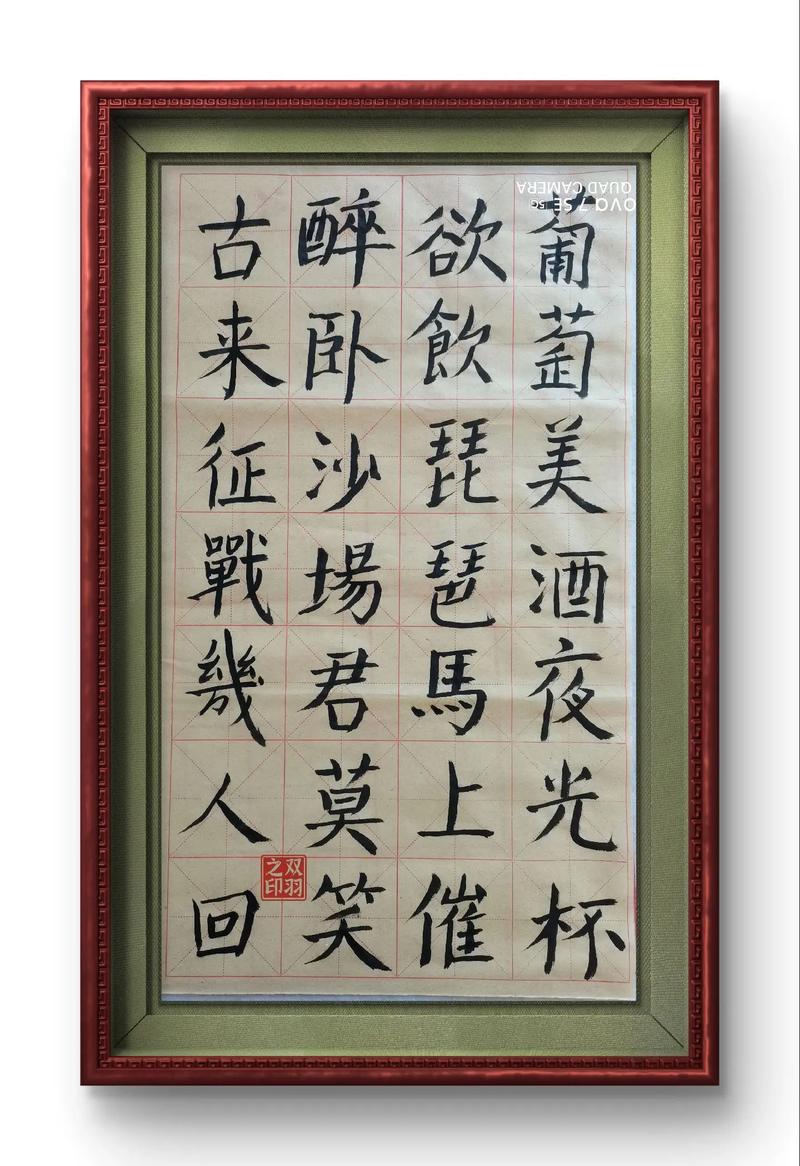 葡萄美酒夜光杯
欲飲琵琶馬上催
醉卧沙場君莫笑
古来征戰幾人回
双羽之印
QUAD CAMERA